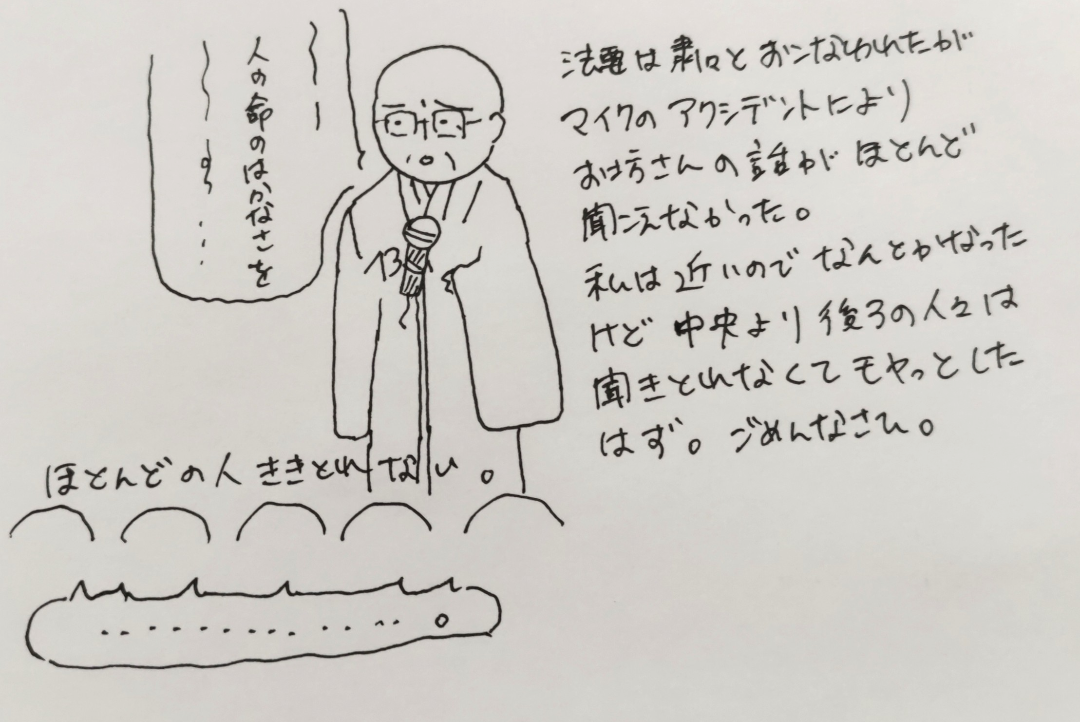 法要は粛々とおこなわれたが
マイクのアクシデントにより
お坊さんの話がほとんど
聞こえなかった。
私は近いのでなんとかなった
けど中央より後ろの人々は
聞きとれなくてモヤっとした
はず。ごめんなさひ。
人の命のはかなさを
ほとんどの人ききとれない。